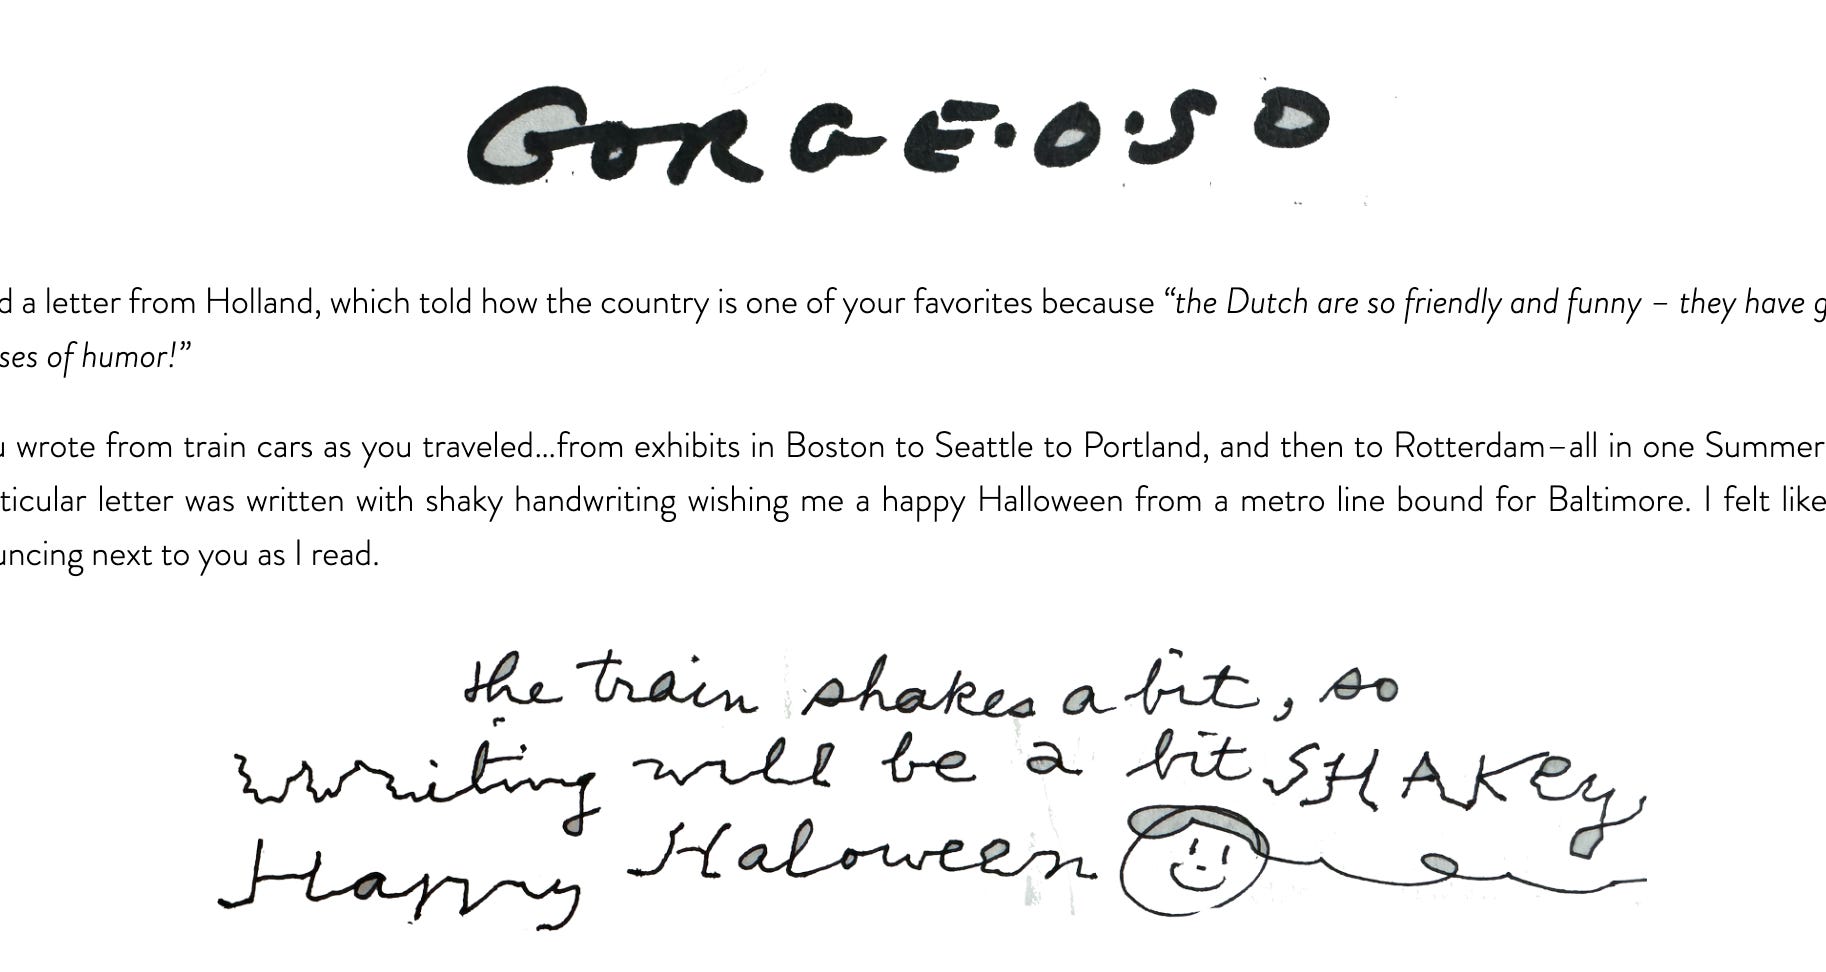 GORGE·O·SO
d a letter from Holland, which told how the country is one of your favorites because “the Dutch are so friendly and funny – they have g
ses of humor!”
u wrote from train cars as you traveled...from exhibits in Boston to Seattle to Portland, and then to Rotterdam–all in one Summer
ticular letter was written with shaky handwriting wishing me a happy Halloween from a metro line bound for Baltimore. I felt like
uncing next to you as I read.
the train shakes a bit, so
writing will be a bit SHAKey,
Happy Haloween